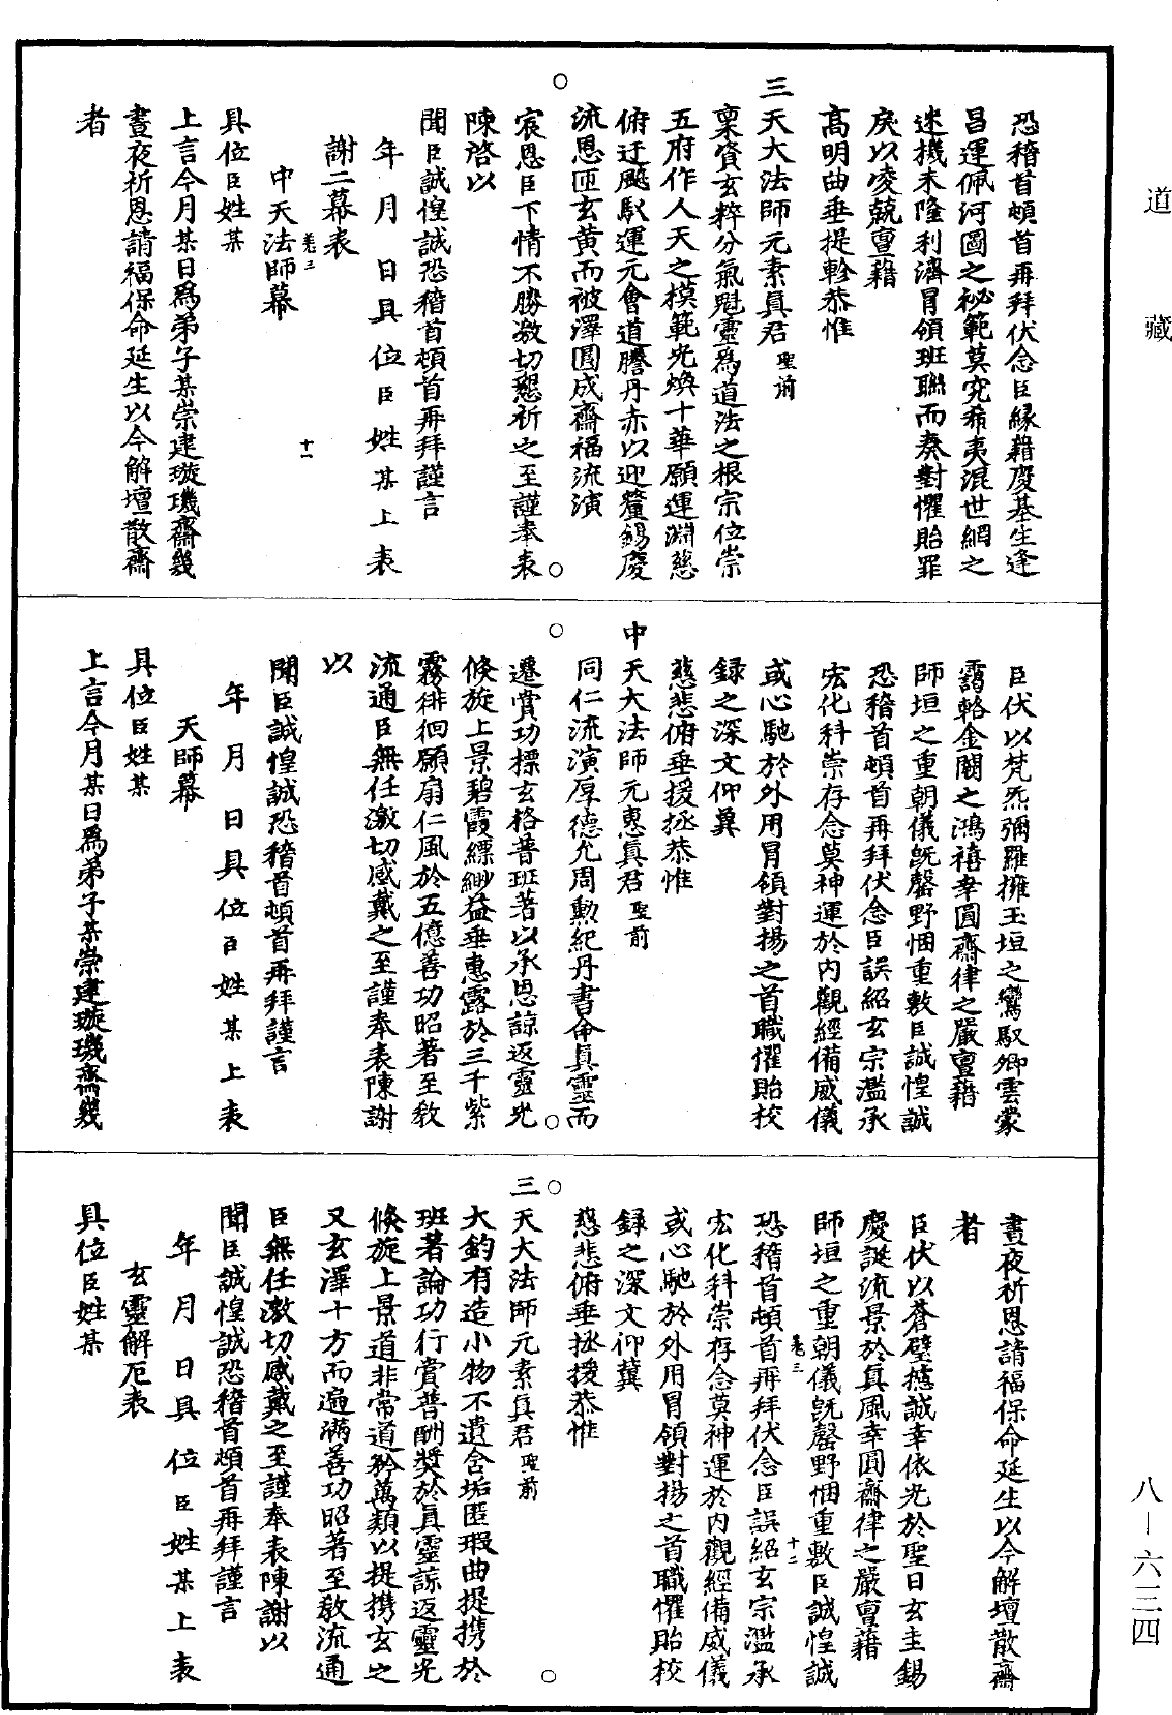 道藏
恐稽首頓首再拜伏念臣緣藉慶基生逢
昌運佩河圖之祕範莫究希夷混世網之
迷機未隆利濟冒領班聯而奏對懼貽罪
戾以凌兢亶藉
高明曲垂提軫恭惟
三天大法師元素真君聖前
稟資玄粹分氣魁靈為道法之根宗位崇
五府作人天之模範光煥十華願運淵慈
俯迂飈馭運元會道謄丹赤以迎釐錫慶
流恩匝玄黃而被澤圓成齋福流演
宸恩臣下情不勝激切懇祈之至謹奉表
陳啓以
聞臣誠惶誠恐稽首頓首再拜謹言
年月日具位臣姓某上表
謝二幕表
卷三 十一
中天法師幕
具位臣姓某
上言今月某日為弟子某崇建璇璣齋幾
晝夜祈恩請福保命延生以今解壇散齋
者
臣伏以梵炁彌羅擁玉垣之鸞馭卿雲靄
靄輅金闕之鴻禧幸圓齋律之嚴亶藉
師垣之重朝儀既罄野悃重敷臣誠惶誠
恐稽首頓首再拜伏念臣誤紹玄宗濫承
宏化科崇存念莫神運於內觀經備威儀
或心馳於外用冒領對揚之首職懼貽校
録之深文仰冀
慈悲俯垂援拯恭惟
中天大法師元惠真君聖前
同仁流演厚德允周勳紀丹書命真靈而
遷賞功標玄格普班著以承恩諒返靈光
倏旋上景碧霞縹緲益垂惠露於三千紫
霧徘徊願扇仁風於五億善功昭著至教
流通臣無任激切感戴之至謹奉表陳謝
以
聞臣誠惶誠恐稽首頓首再拜謹言
年月日具位臣姓某上表
天師幕
具位臣姓某
上言今月某日為弟子某崇建璇璣齋幾
晝夜祈恩請福保命延生以今解壇散齋
者
臣伏以蒼璧攄誠幸依光於聖日玄圭錫
慶誕流景於真風幸圓齋律之嚴亶藉
師垣之重朝儀既罄野悃重敷臣誠惶誠
卷三 十二
恐稽首頓首再拜伏念臣誤紹玄宗濫承
宏化科崇存念莫神運於內觀經備威儀
或心馳於外用冒領對揚之首職懼貽校
録之深文仰冀
慈悲俯垂拯援恭惟
三天大法師元素真君聖前
大鈞有造小物不遺含垢匿瑕曲提携於
班著論功行賞普酬奬於真靈諒返靈光
倏旋上景道非常道矜萬類以提携玄之
又玄澤十方而遍滿善功昭著至教流通
臣無任激切感戴之至謹奉表陳謝以
聞臣誠惶誠恐稽首頓首再拜謹言
年月日具位臣姓某上表
玄靈解厄表
具位臣姓某
八—六三四